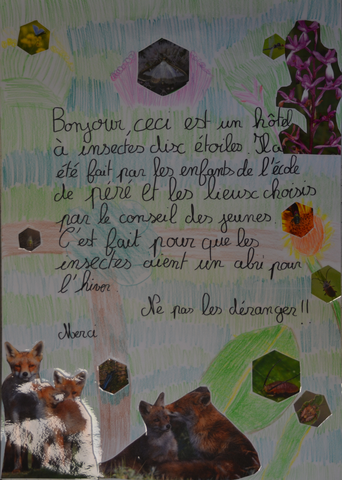 Bonjour, ceci est un hôtel
à insectes dix étoiles. Il a
été fait par les enfants de l'école
de péré et les lieux choisis
par le conseil des jeunes.
C'est fait pour que les
insectes aient un abri pour
l'hiver
Ne pas les déranger!!
Merci